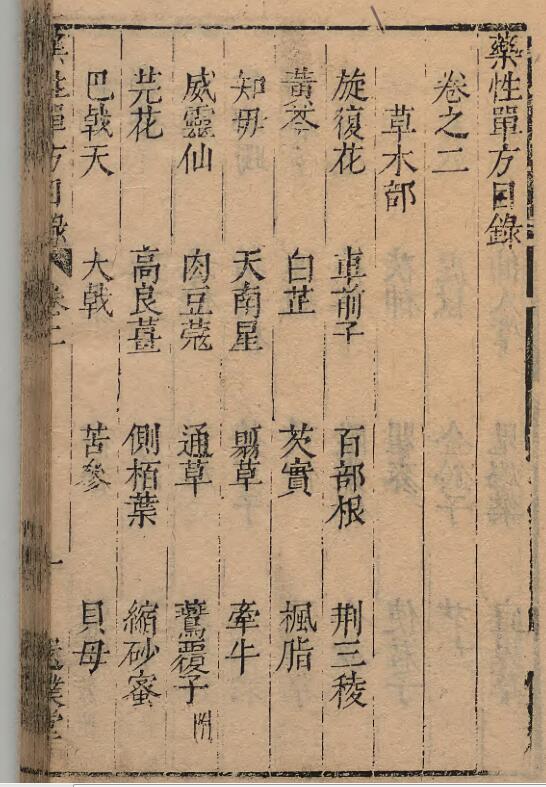 藥性單方目錄
卷之二
草木部
旋復花 車前子 百部根 荆三稜
黃芩 白芷 芡實 楓脂
知母 天南星 翦草 牽牛
威靈仙 肉豆蔻 通草 鷰覆子 附
芫花 高良薑 側栢葉 縮砂蜜
巴戟天 大戟 苦參 貝母
藥性單方目錄 卷二 一